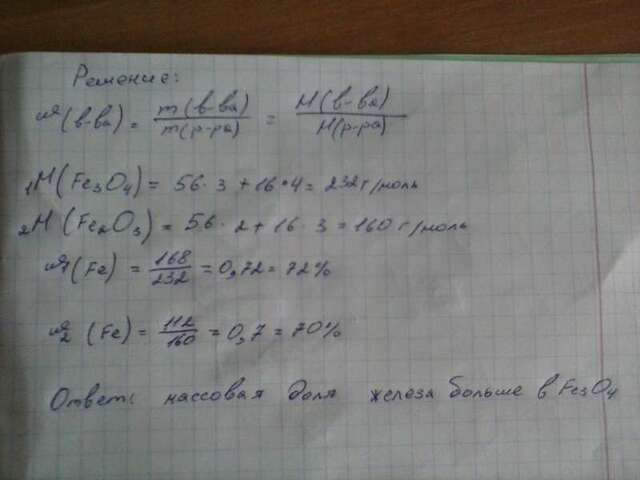 Решение:
ω(в-ва) = m(в-ва)/m(р-ра) = M(в-ва)/M(р-ра)
₁M(Fe₃O₄) = 56·3+16·4= 232г/моль
₂M(Fe₂O₃) = 56·2+16·3=160г/моль
ω₁(Fe) = 168/232 = 0,72=72%
ω₂(Fe) = 112/160 = 0,7 = 70%
Ответ: массовая доля железа больше в Fe₃O₄